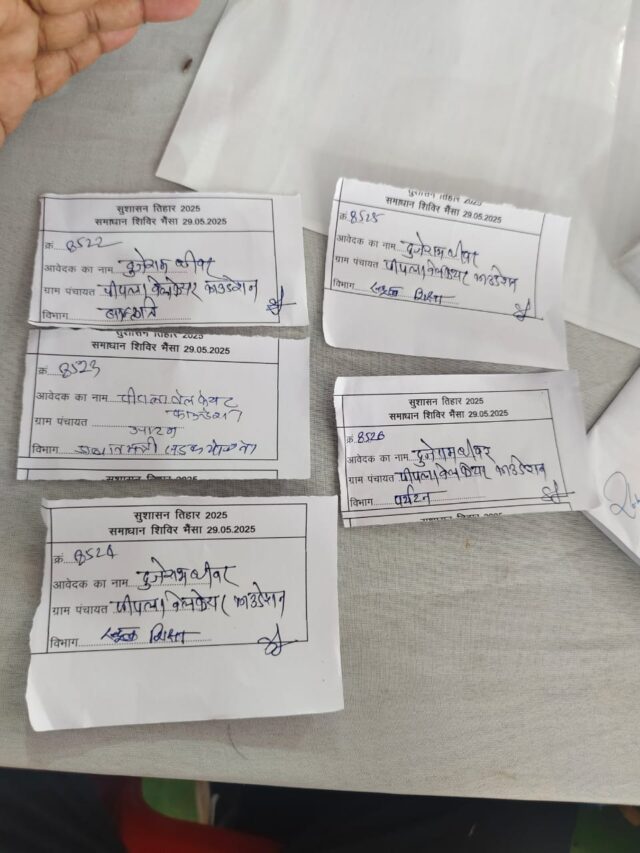 सुशासन तिहार 2025
समाधान शिविर भैंसा 29.05.2025
क्रं. 8522
आवेदक का नाम दुजेराम धीवर
ग्राम पंचायत पीपला वेलफेयर फाउंडेशन
विभाग
समाधान शिविर भैंसा 29.05.2025
क्रं. 8523
आवेदक का नाम पीपला वेलफेयर
फाउंडेशन
ग्राम पंचायत
विभाग
सुशासन तिहार 2025
समाधान शिविर भैंसा 29.05.2025
क्रं. 8524
आवेदक का नाम दुजेराम धीवर
ग्राम पंचायत पीपला वेलफेयर फाउंडेशन
विभाग स्कूल शिक्षा
सुशासन तिहार 2025
समाधान शिविर भैंसा 29.05.2025
क्रं. 8525
आवेदक का नाम दुजेराम धीवर
ग्राम पंचायत पीपला वेलफेयर फाउंडेशन
विभाग स्कूल शिक्षा
सुशासन तिहार 2025
समाधान शिविर भैंसा 29.05.2025
क्रं. 8526
आवेदक का नाम दुजेराम धीवर
ग्राम पंचायत पीपला वेलफेयर फाउंडेशन
विभाग पर्यटन